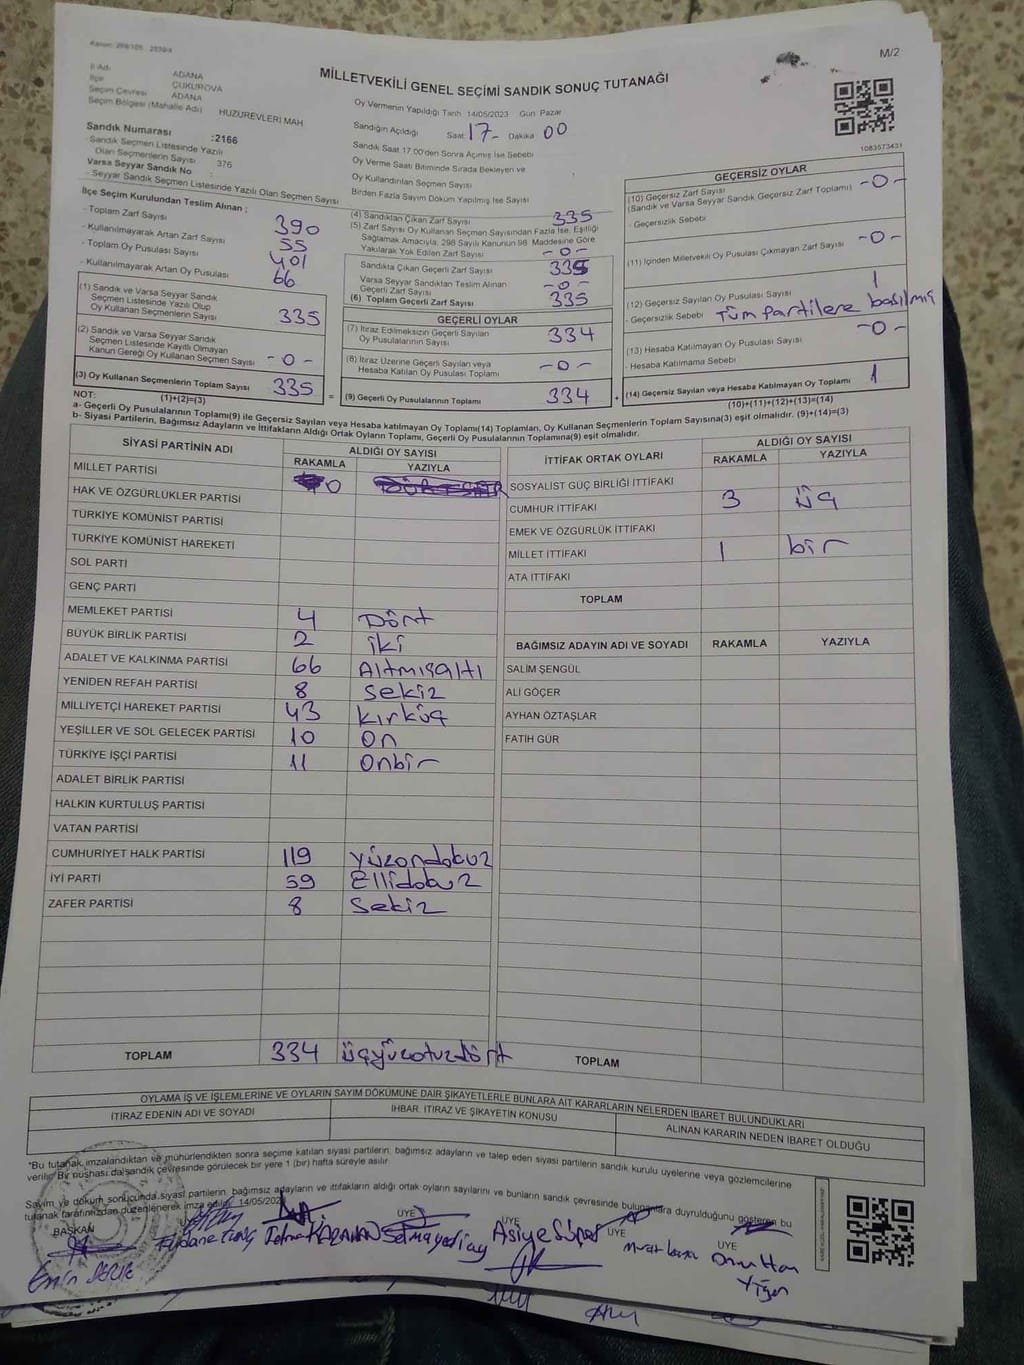 Kanun: 298/105 2839/4
M/2
İl Adı ADANA
İlçe ÇUKUROVA
Seçim Çevresi ADANA
Seçim Bölgesi (Mahalle Adı) HUZUREVLERİ MAH
MİLLETVEKİLİ GENEL SEÇİMİ SANDIK SONUÇ TUTANAĞI
Oy Vermenin Yapıldığı Tarih 14/05/2023 Gün Pazar
Sandığın Açıldığı Saat 17- Dakika 00
Sandık Saat 17.00'den Sonra Açılmış İse Sebebi
Oy Verme Saati Bitiminde Sırada Bekleyen ve
Oy Kullandırılan Seçmen Sayısı
Birden Fazla Sayım Dökum Yapılmış İse Sayısı
1083573431
Sandık Numarası :2166
- Sandık Seçmen Listesinde Yazılı
Olan Seçmenlerin Sayısı 376
Varsa Seyyar Sandık No :
- Seyyar Sandık Seçmen Listesinde Yazılı Olan Seçmen Sayısı
İlçe Seçim Kurulundan Teslim Alınan ;
- Toplam Zarf Sayısı 390
- Kullanılmayarak Artan Zarf Sayısı 55
- Toplam Oy Pusulası Sayısı 401
- Kullanılmayarak Artan Oy Pusulası 66
(1) Sandık ve Varsa Seyyar Sandık
Seçmen Listesinde Yazılı Olup
Oy Kullanan Seçmenlerin Sayısı 335
(2) Sandık ve Varsa Seyyar Sandık
Seçmen Listesinde Kayıtlı Olmayan
Kanun Gereği Oy Kullanan Seçmen Sayısı -0-
(3) Oy Kullanan Seçmenlerin Toplam Sayısı 335 =
(1)+(2)=(3)
(4) Sandıktan Çıkan Zarf Sayısı 335
(5) Zarf Sayısı Oy Kullanan Seçmen Sayısından Fazla İse, Eşitliği
Sağlamak Amacıyla, 298 Sayılı Kanunun 98. Maddesine Göre
Yakılarak Yok Edilen Zarf Sayısı -0-
Sandıkta Çıkan Geçerli Zarf Sayısı 335
Varsa Seyyar Sandıktan Teslim Alınan
Geçerli Zarf Sayısı -0-
(6) Toplam Geçerli Zarf Sayısı 335
GEÇERLİ OYLAR
(7) İtiraz Edilmeksizin Geçerli Sayılan
Oy Pusulalarının Sayısı 334
(8) İtiraz Üzerine Geçerli Sayılan veya
Hesaba Katılan Oy Pusulası Toplamı -0-
(9) Geçerli Oy Pusulalarının Toplamı 334 +
GEÇERSİZ OYLAR
(10) Geçersiz Zarf Sayısı
(Sandık ve Varsa Seyyar Sandık Geçersiz Zarf Toplamı) -0-
- Geçersizlik Sebebi
(11) İçinden Milletvekili Oy Pusulası Çıkmayan Zarf Sayısı -0-
(12) Geçersiz Sayılan Oy Pusulası Sayısı 1
- Geçersizlik Sebebi Tüm Partilere basılmış
(13) Hesaba Katılmayan Oy Pusulası Sayısı -0-
- Hesaba Katılmama Sebebi
(14) Geçersiz Sayılan veya Hesaba Katılmayan Oy Toplamı 1
(10)+(11)+(12)+(13)=(14)
NOT:
a- Geçerli Oy Pusulalarının Toplamı(9) ile Geçersiz Sayılan veya Hesaba katılmayan Oy Toplamı(14) Toplamları, Oy Kullanan Seçmenlerin Toplam Sayısına(3) eşit olmalıdır. (9)+(14)=(3)
b- Siyasi Partilerin, Bağımsız Adayların ve İttifakların Aldığı Ortak Oyların Toplamı, Geçerli Oy Pusulalarının Toplamına(9) eşit olmalıdır.
SİYASİ PARTİNİN ADI ALDIĞI OY SAYISI
RAKAMLA YAZIYLA
MİLLET PARTİSİ 0
HAK VE ÖZGÜRLÜKLER PARTİSİ
TÜRKİYE KOMÜNİST PARTİSİ
TÜRKİYE KOMÜNİST HAREKETİ
SOL PARTİ
GENÇ PARTİ
MEMLEKET PARTİSİ 4 Dört
BÜYÜK BİRLİK PARTİSİ 2 iki
ADALET VE KALKINMA PARTİSİ 66 Altmışaltı
YENİDEN REFAH PARTİSİ 8 Sekiz
MİLLİYETÇİ HAREKET PARTİSİ 43 kırküç
YEŞİLLER VE SOL GELECEK PARTİSİ 10 On
TÜRKİYE İŞÇİ PARTİSİ 11 Onbir
ADALET BİRLİK PARTİSİ
HALKIN KURTULUŞ PARTİSİ
VATAN PARTİSİ
CUMHURİYET HALK PARTİSİ 119 yüzondokuz
İYİ PARTİ 59 Ellidokuz
ZAFER PARTİSİ 8 Sekiz
TOPLAM 334 üçyüzotuzdört
İTTİFAK ORTAK OYLARI ALDIĞI OY SAYISI
RAKAMLA YAZIYLA
SOSYALİST GÜÇ BİRLİĞİ İTTİFAKI
CUMHUR İTTİFAKI 3 üç
EMEK VE ÖZGÜRLÜK İTTİFAKI
MİLLET İTTİFAKI 1 bir
ATA İTTİFAKI
TOPLAM
BAĞIMSIZ ADAYIN ADI VE SOYADI RAKAMLA YAZIYLA
SALİM ŞENGÜL
ALİ GÖÇER
AYHAN ÖZTAŞLAR
FATİH GÜR
TOPLAM
OYLAMA İŞ VE İŞLEMLERİNE VE OYLARIN SAYIM DÖKÜMÜNE DAİR ŞİKAYETLERLE BUNLARA AİT KARARLARIN NELERDEN İBARET BULUNDUKLARI
İTİRAZ EDENİN ADI VE SOYADI İHBAR, İTİRAZ VE ŞİKAYETİN KONUSU ALINAN KARARIN NEDEN İBARET OLDUĞU
*Bu tutanak imzalandıktan ve mühürlendikten sonra seçime katılan siyasi partilerin, bağımsız adayların ve talep eden siyasi partilerin sandık kurulu üyelerine veya gözlemcilerine
verilir. Bir nüshası da sandık çevresinde görülecek bir yere 1 (bir) hafta süreyle asılır.
Sayım ve döküm sonucunda siyasi partilerin, bağımsız adayların ve ittifakların aldığı ortak oyların sayılarını ve bunların sandık çevresinde bulunanlara duyrulduğunu gösteren bu
tutanak tarafımızdan düzenlenerek imza edildi. 14/05/202
BAŞKAN ÜYE ÜYE ÜYE ÜYE
Asiye
Emin
Yiğen